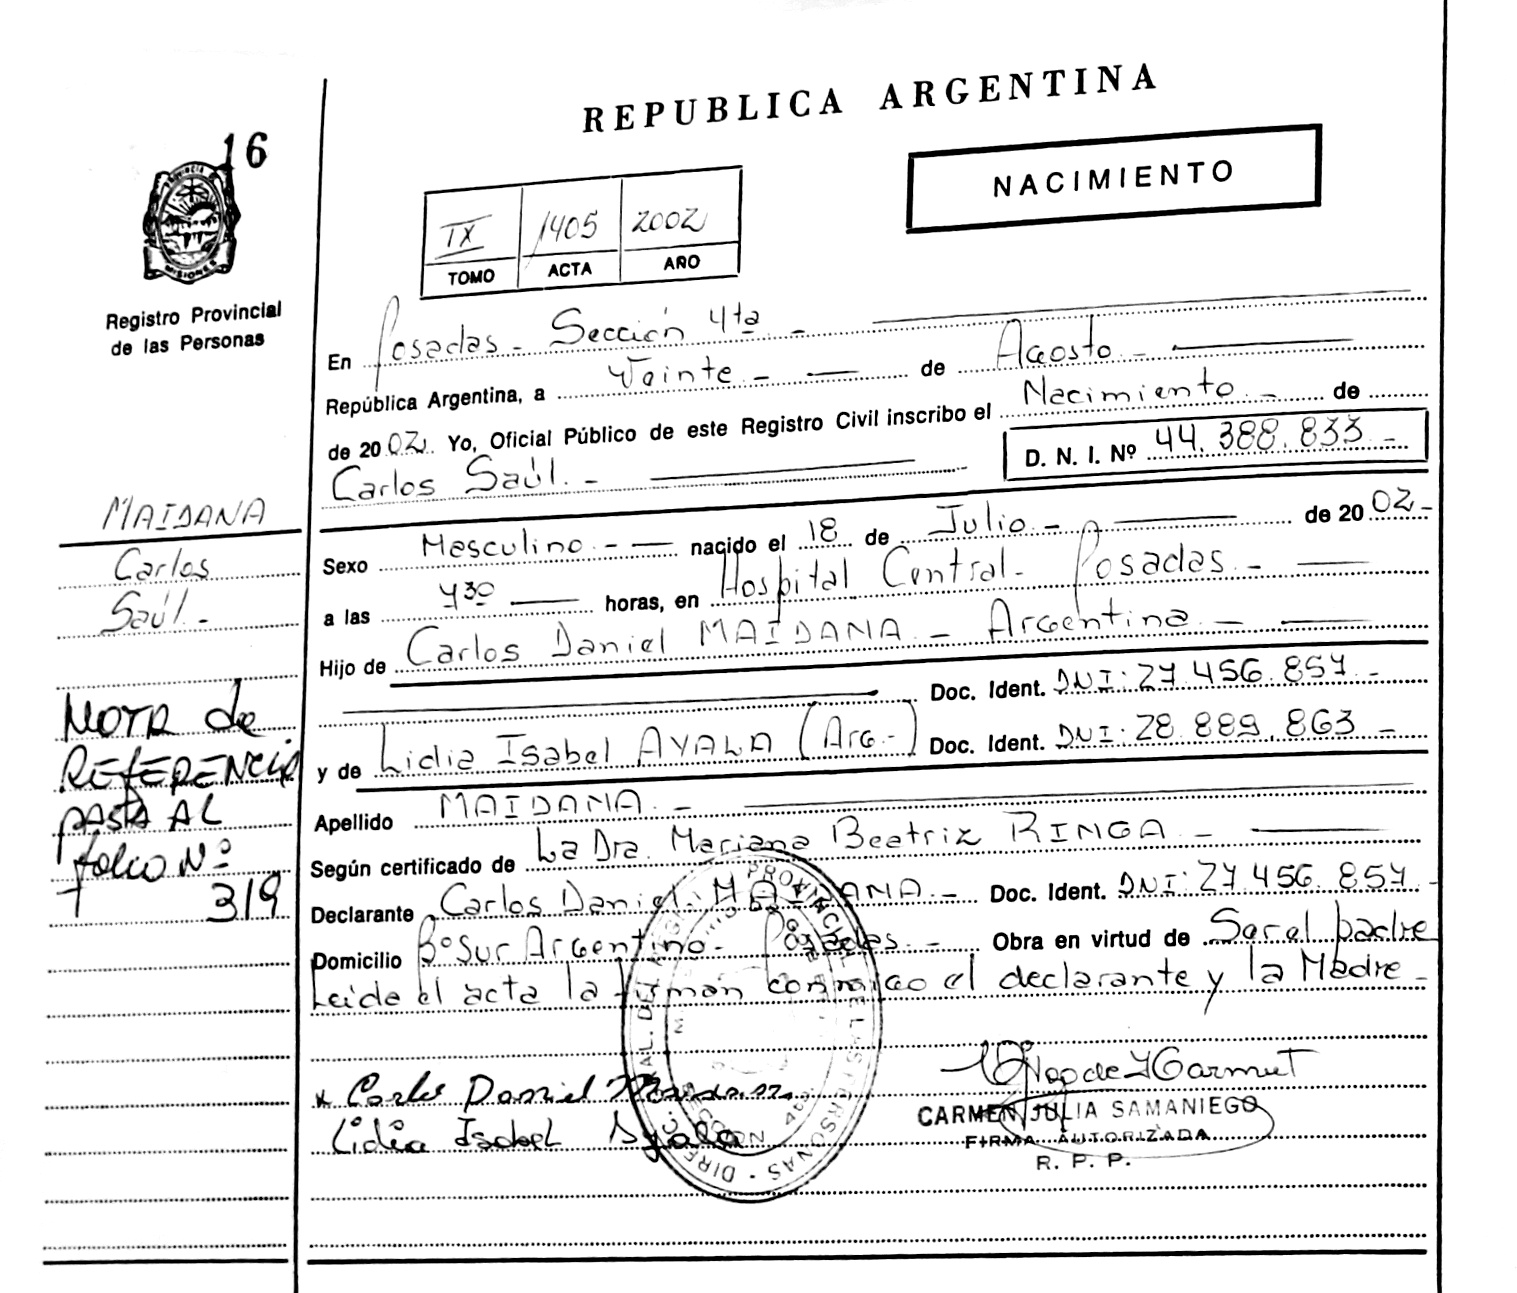 REPUBLICA ARGENTINA
16
NACIMIENTO
IX 1405 2002
TOMO ACTA AÑO
PROVINCIA DE
MISIONES
Registro Provincial
de las Personas
En Posadas - Sección 4ta -
República Argentina, a Veinte - de Agosto -
de 2002 Yo, Oficial Público de este Registro Civil inscribo el Nacimiento - de
Carlos Saúl. - D. N. I. Nº 44.388.833 -
MAIDANA
Carlos
Saúl. -
Sexo Masculino - nacido el 18 de Julio - de 2002 -
a las 730 horas, en Hospital Central - Posadas. -
Hijo de Carlos Daniel MAIDANA - Argentina -
Doc. Ident. DNI: 27.456.857 -
y de Lidia Isabel AYALA (Arg. -) Doc. Ident. DNI: 28.889.863 -
Apellido MAIDANA. -
Según certificado de La Dra. Mariana Beatriz RINGA -
Declarante Carlos Daniel MAIDANA. - Doc. Ident. DNI: 27.456.857 -
Domicilio Bº Sur Argentino - Posadas. - Obra en virtud de Ser el padre
Leida el acta la firman conmigo el declarante y la Madre -
NOTA de
REFERENCIA
PASTA AL
folio Nº
319
x Carlos Daniel Maidana
Lidia Isabel Ayala
CARMEN JULIA SAMANIEGO
FIRMA AUTORIZADA
R. P. P.